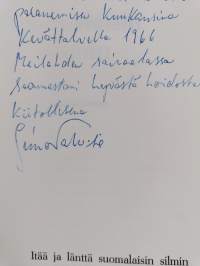 palanemisen kuukausina
Kevättalvella 1966
Meilahden sairaalassa
saamastani hyvästä hoidosta
kiitollisena
Simo
Itää ja länttä suomalaisin silmin